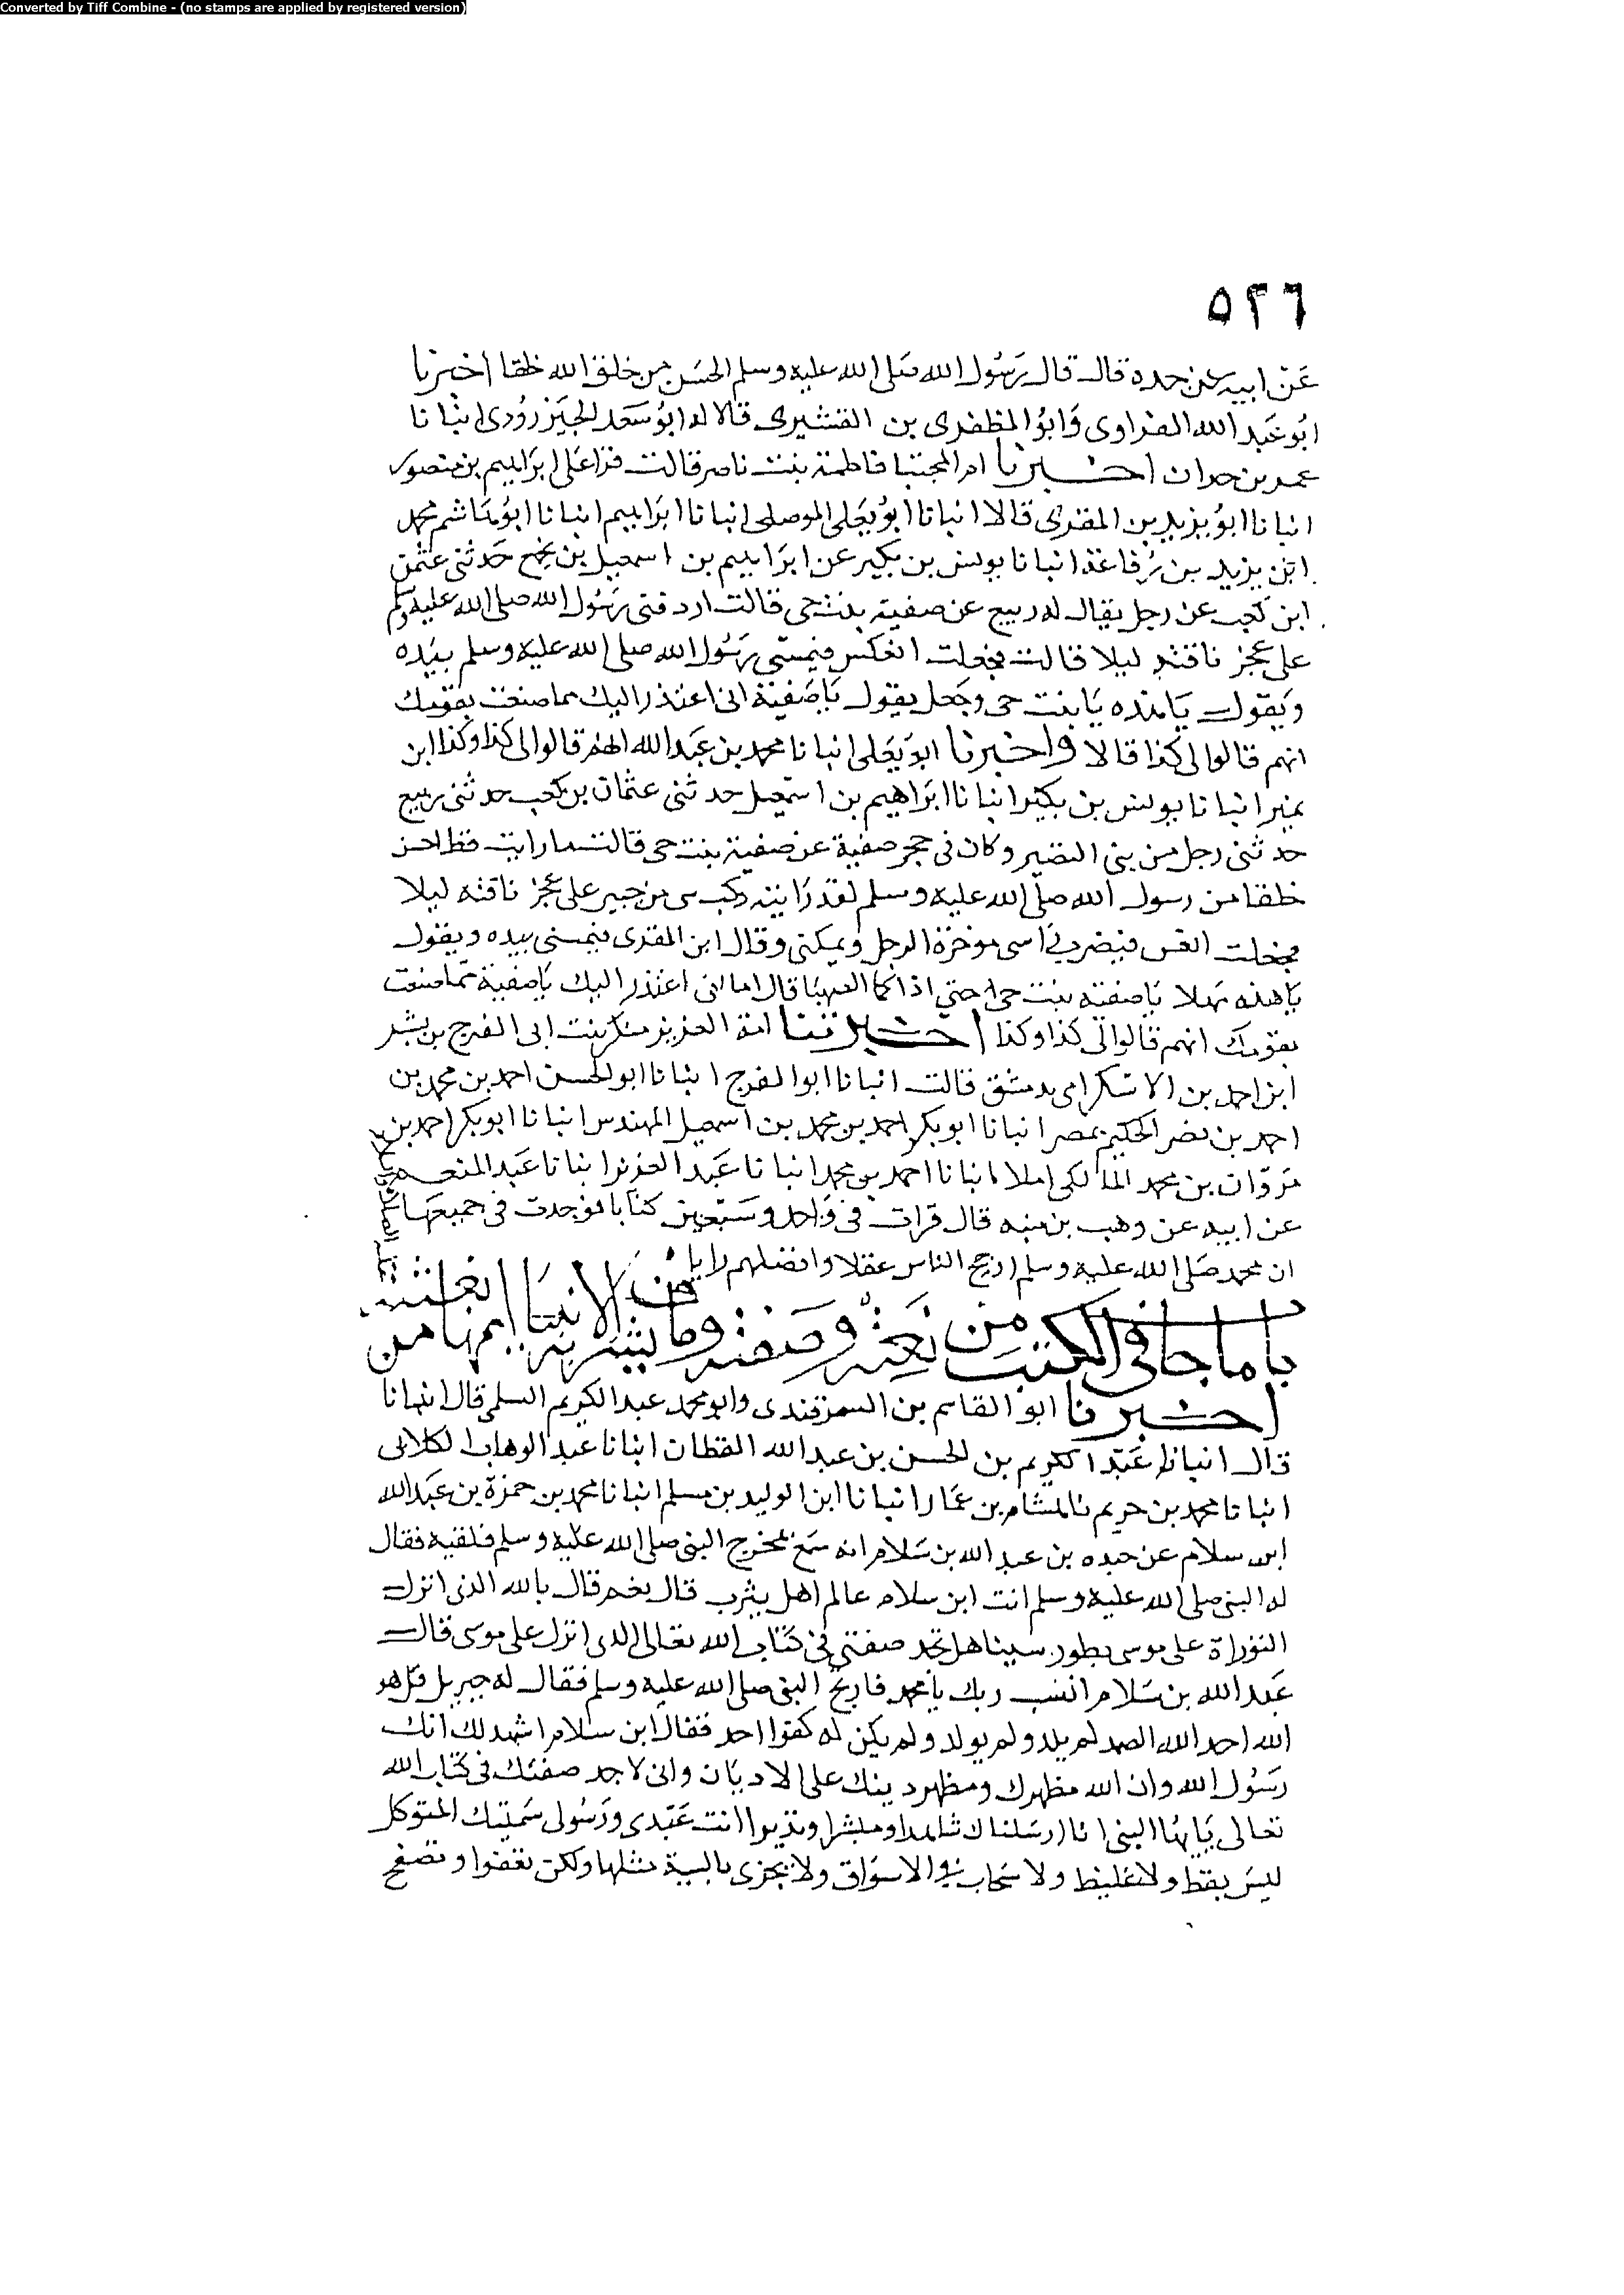 Converted by Tiff Combine - (no stamps are applied by registered version)
٥٢٦
عن ابيه عن جده قال قال رسول الله صلى الله عليه وسلم الحسن من خلق الله خلقا اخبرنا
ابو عبد الله الفراوى وابو المظفرى بن القشيرى قالا له ابو سعد الجيزرودى انبانا
عمرو بن حمدان اخبرنا ام المجتبا فاطمة بنت ناصر قالت قرا على ابراهيم بن منصور
انبانا ابو يزيد بن المقرى قالا انبانا ابو يعلى الموصلى انبانا ابراهيم انبانا ابو هاشم محمد
ابن يزيد بن رفاعة انبانا يونس بن بكير عن ابراهيم بن اسمعيل بن حدثنى عثمن
ابن كعب عن رجل يقال له ربيع عن صفية بنت حى قالت اردفنى رسول الله صلى الله عليه وسلم
على عجز ناقته ليلا قالت فجعلت انعكس فيمسنى رسول الله صلى الله عليه وسلم بيده
ويقول يا هذه يا بنت حى وجعل يقول يا صفية انى اعتذر اليك مما صنعت بقومك
انهم قالوا لى كذا قالا واخبرنا ابو يعلى انبانا محمد بن عبد الله قالوا لى كذا وكذا ابن
نمير انبانا يونس بن بكير انبانا ابراهيم بن اسمعيل حدثنى عثمان بن كعب حدثنى ربيع
حدثنى رجل من بنى النضير وكان فى حجر صفية عن صفية بنت حى قالت ما رايت قط احسن
خلقا من رسول الله صلى الله عليه وسلم لقد رايته ركب بى من خيبر على عجز ناقته ليلا
فجعلت انعس فيضرب راسى موخرة الرحل ويمكنى وقال ابن المقرى فيمسنى بيده ويقول
يا هذه مهلا يا صفية بنت حى حتى اذا الصهبا قال اما انى اعتذر اليك يا صفية مما صنعت
بقومك انهم قالوا لى كذا وكذا اخبرتنا امة العزيز شكر بنت ابى الفرج بن بشر
ابن احمد بن الاشكرامى بدمشق قالت انبانا ابو الفرج انبانا ابو الحسن احمد بن محمد بن
احمد بن نصر الحكيم بمصر انبانا ابو بكر احمد بن محمد بن اسمعيل المهندس انبانا ابو بكر احمد بن
مروان بن محمد المالكى املاء انبانا احمد بن محمد انبانا عبد العزيز انبانا عبد المنعم
عن ابيه عن وهب بن منبه قال قرات فى واحد وسبعين كتابا فوجدت فى جميعها
ان محمد صلى الله عليه وسلم ارجح الناس عقلا وافضلهم رايا
باب ما جا فى الكتب من نعته وصفته وما بشرت به الانبيا اممها من
اخبرنا ابو القاسم بن السمرقندى وابو محمد عبد الكريم السلمى قال انبانا
قال انبانا عبد الكريم بن الحسن بن عبد الله القطان انبانا عبد الوهاب الكلابى
انبانا محمد بن حريم نا هشام بن عمار انبانا ابن الوليد بن مسلم انبانا محمد بن حمزة بن عبد الله
ابن سلام عن جده بن عبد الله بن سلام انه سمع بمخرج النبى صلى الله عليه وسلم فلقيه فقال
له النبى صلى الله عليه وسلم انت ابن سلام عالم اهل يثرب قال نعم قال بالله الذى انزل
التوراة على موسى بطور سينا هل تجد صفتى فى كتاب الله تعالى الذى انزل على موسى قال
عبد الله بن سلام انسب ربك يا محمد فارتج النبى صلى الله عليه وسلم فقال له جبريل قل هو
الله احد الله الصمد لم يلد ولم يولد ولم يكن له كفوا احد فقال ابن سلام اشهد لك انك
رسول الله وان الله مظهرك ومظهر دينك على الاديان وانى لاجد صفتك فى كتاب الله
تعالى يايها النبى انا ارسلناك شاهدا ومبشرا ونذيرا انت عبدى ورسولى سميتك المتوكل
ليس بفظ ولا غليظ ولا سخاب فى الاسواق ولا يجزى بالسية مثلها ولكن تعفوا وتصفح